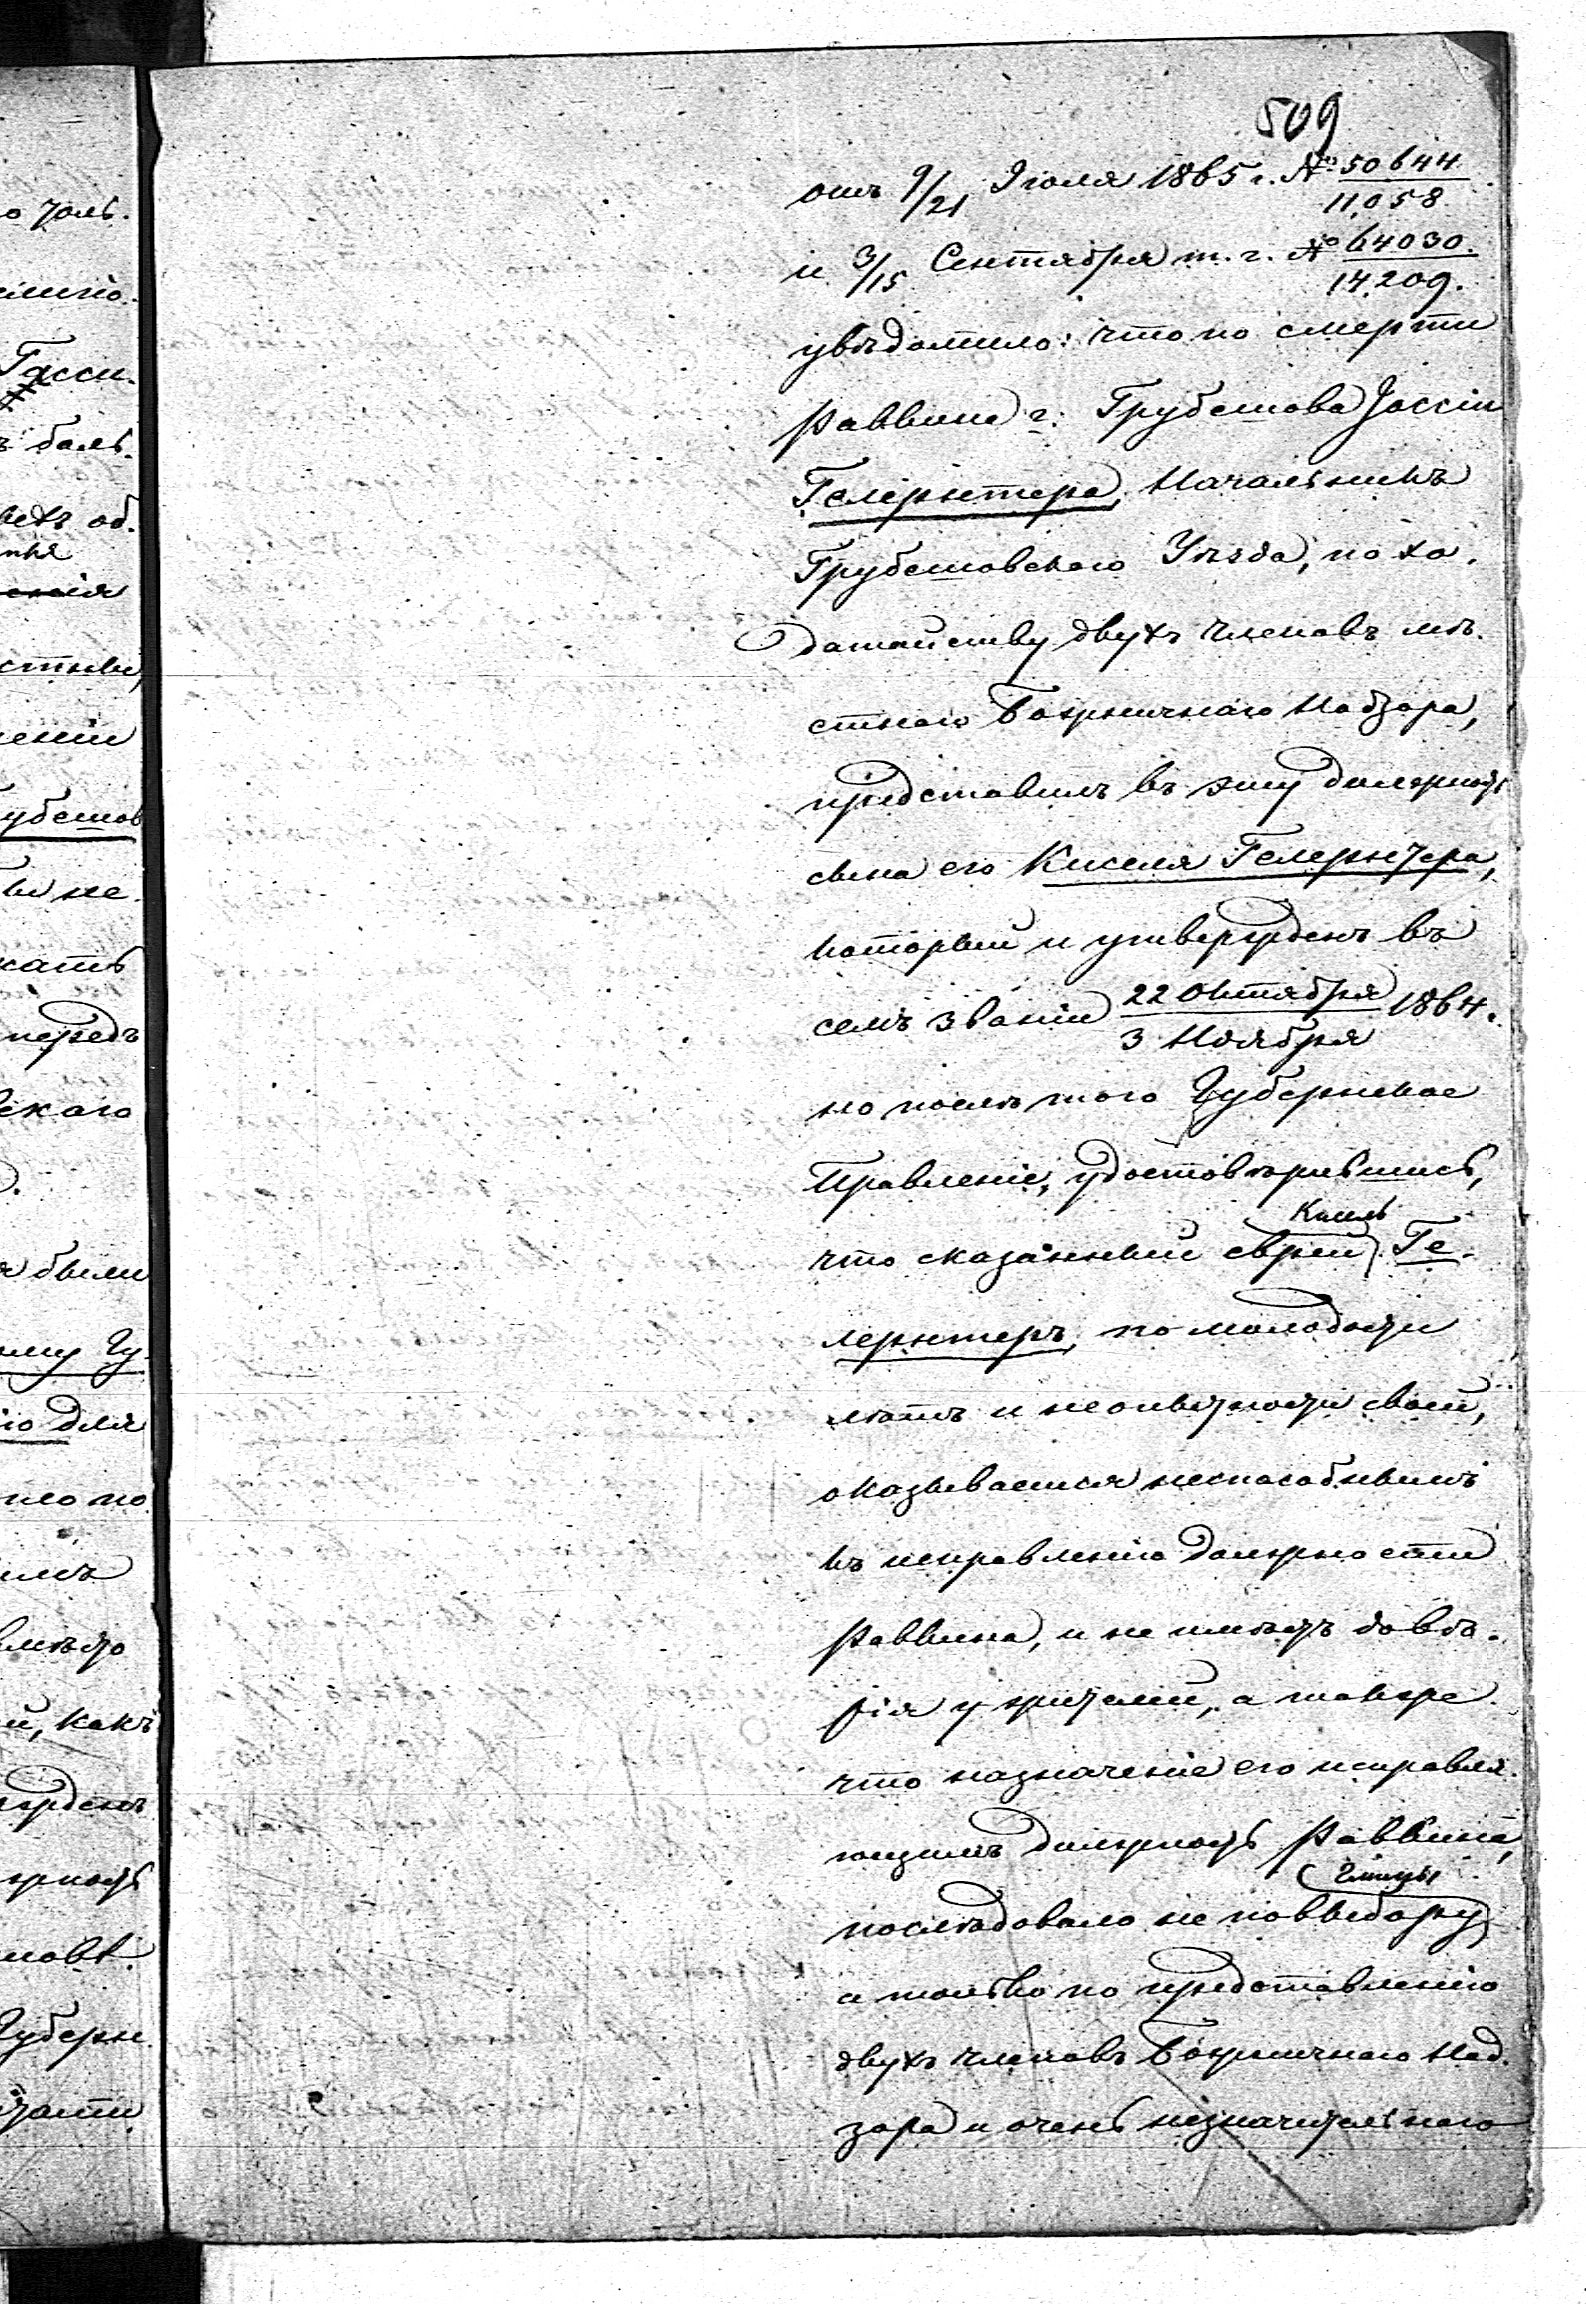 509
о зомъ.
Гасси.
ъ боль.
ніи
убешов
сать
передъ
скаго
я были
ому Гу-
для
но по
й, какъ
Губерн.
отъ 9/21 Іюля 1865 г. № 50644/11,058
и 3/15 Сентября т. г. № 64030/14,209.
увѣдомило: что по смерти
Раввина г. Грубешова Іоссія
Гелернтера, Начальникъ
Грубешовскаго Уѣзда, по хо-
датайству двухъ членовъ мѣ-
стнаго Божничнаго Надзора,
представилъ въ эту должность
сына его Киселя Гелернтера,
который и утвержденъ въ
семъ званіи 22 Октября/3 Ноября 1864.
но послѣ того Губернское
Правленіе, удостовѣрившись,
Кисель
что сказанный еврей Ге-
лернтеръ, по молодости
лѣтъ и неопытности своей,
оказывается неспособнымъ
къ исправленію должности
Раввина, и не имѣетъ довѣ-
рія у жителей, а также
что назначеніе его исправля-
ющимъ должность Раввина,
послѣдовало не по выбору
а только по представленію
двухъ членовъ Божничнаго Над-
зора и очень незначительнаго